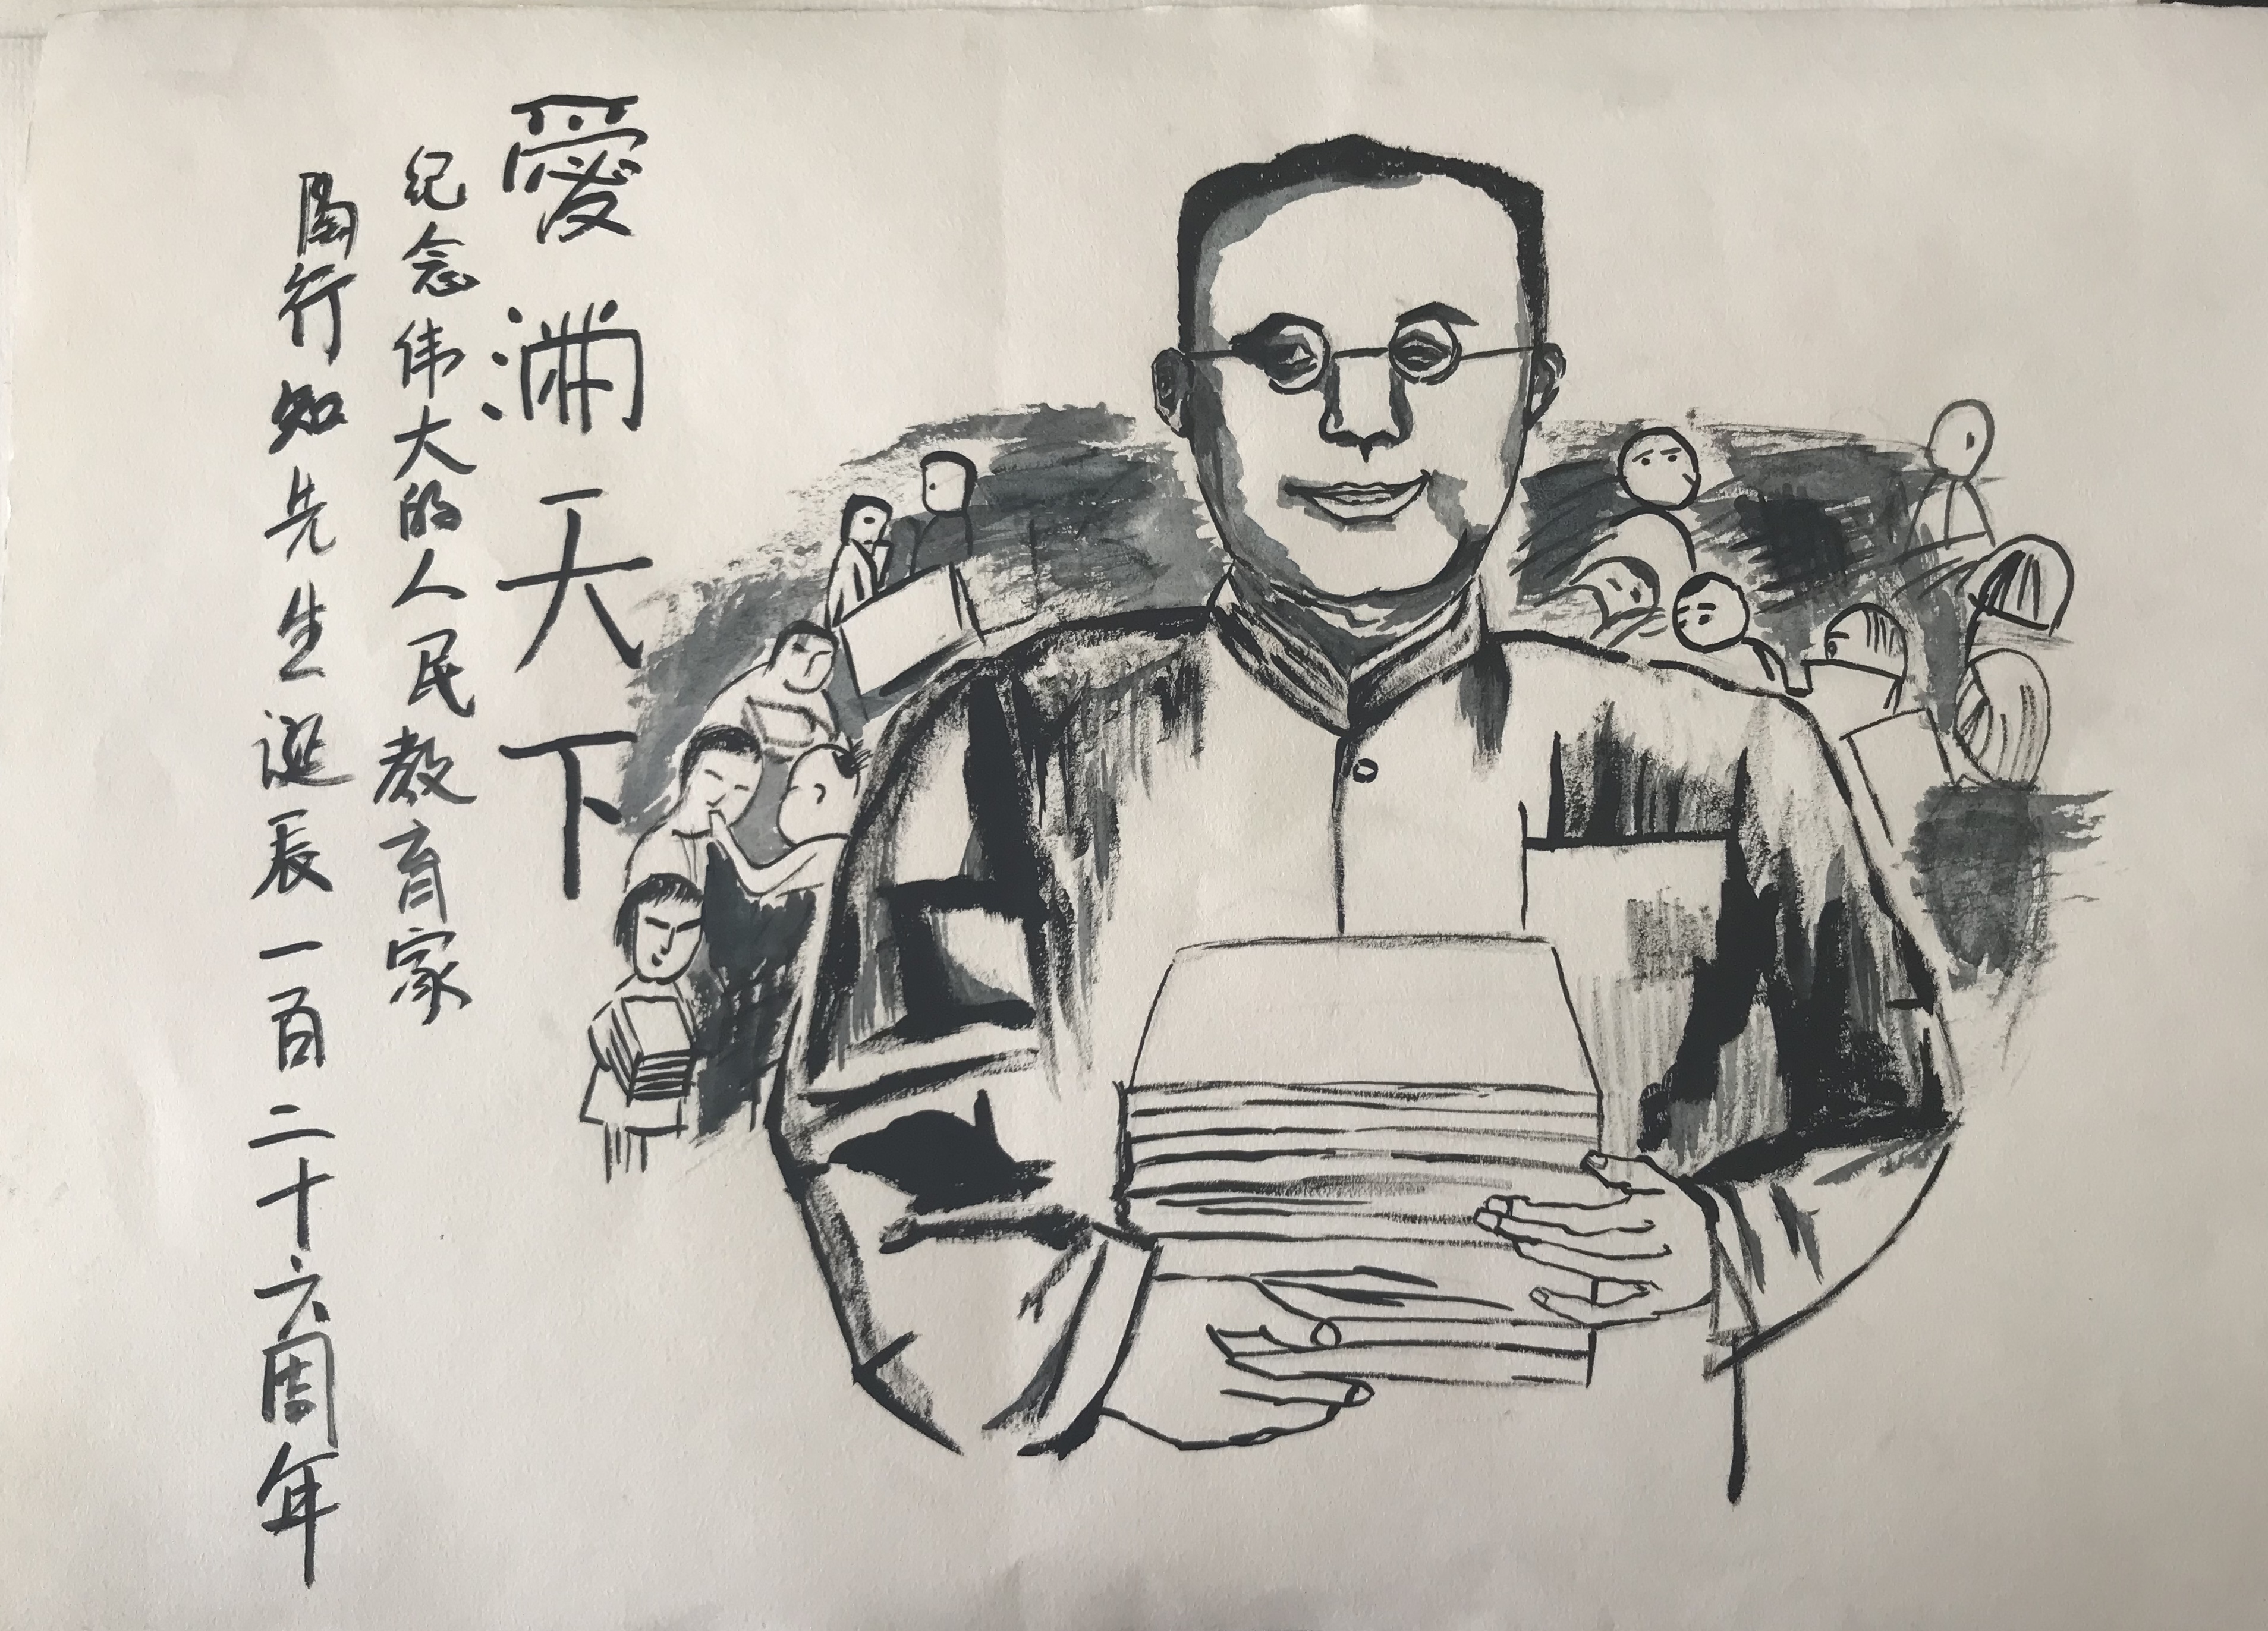 愛满天下
纪念伟大的人民教育家
陶行知先生诞辰一百二十六周年